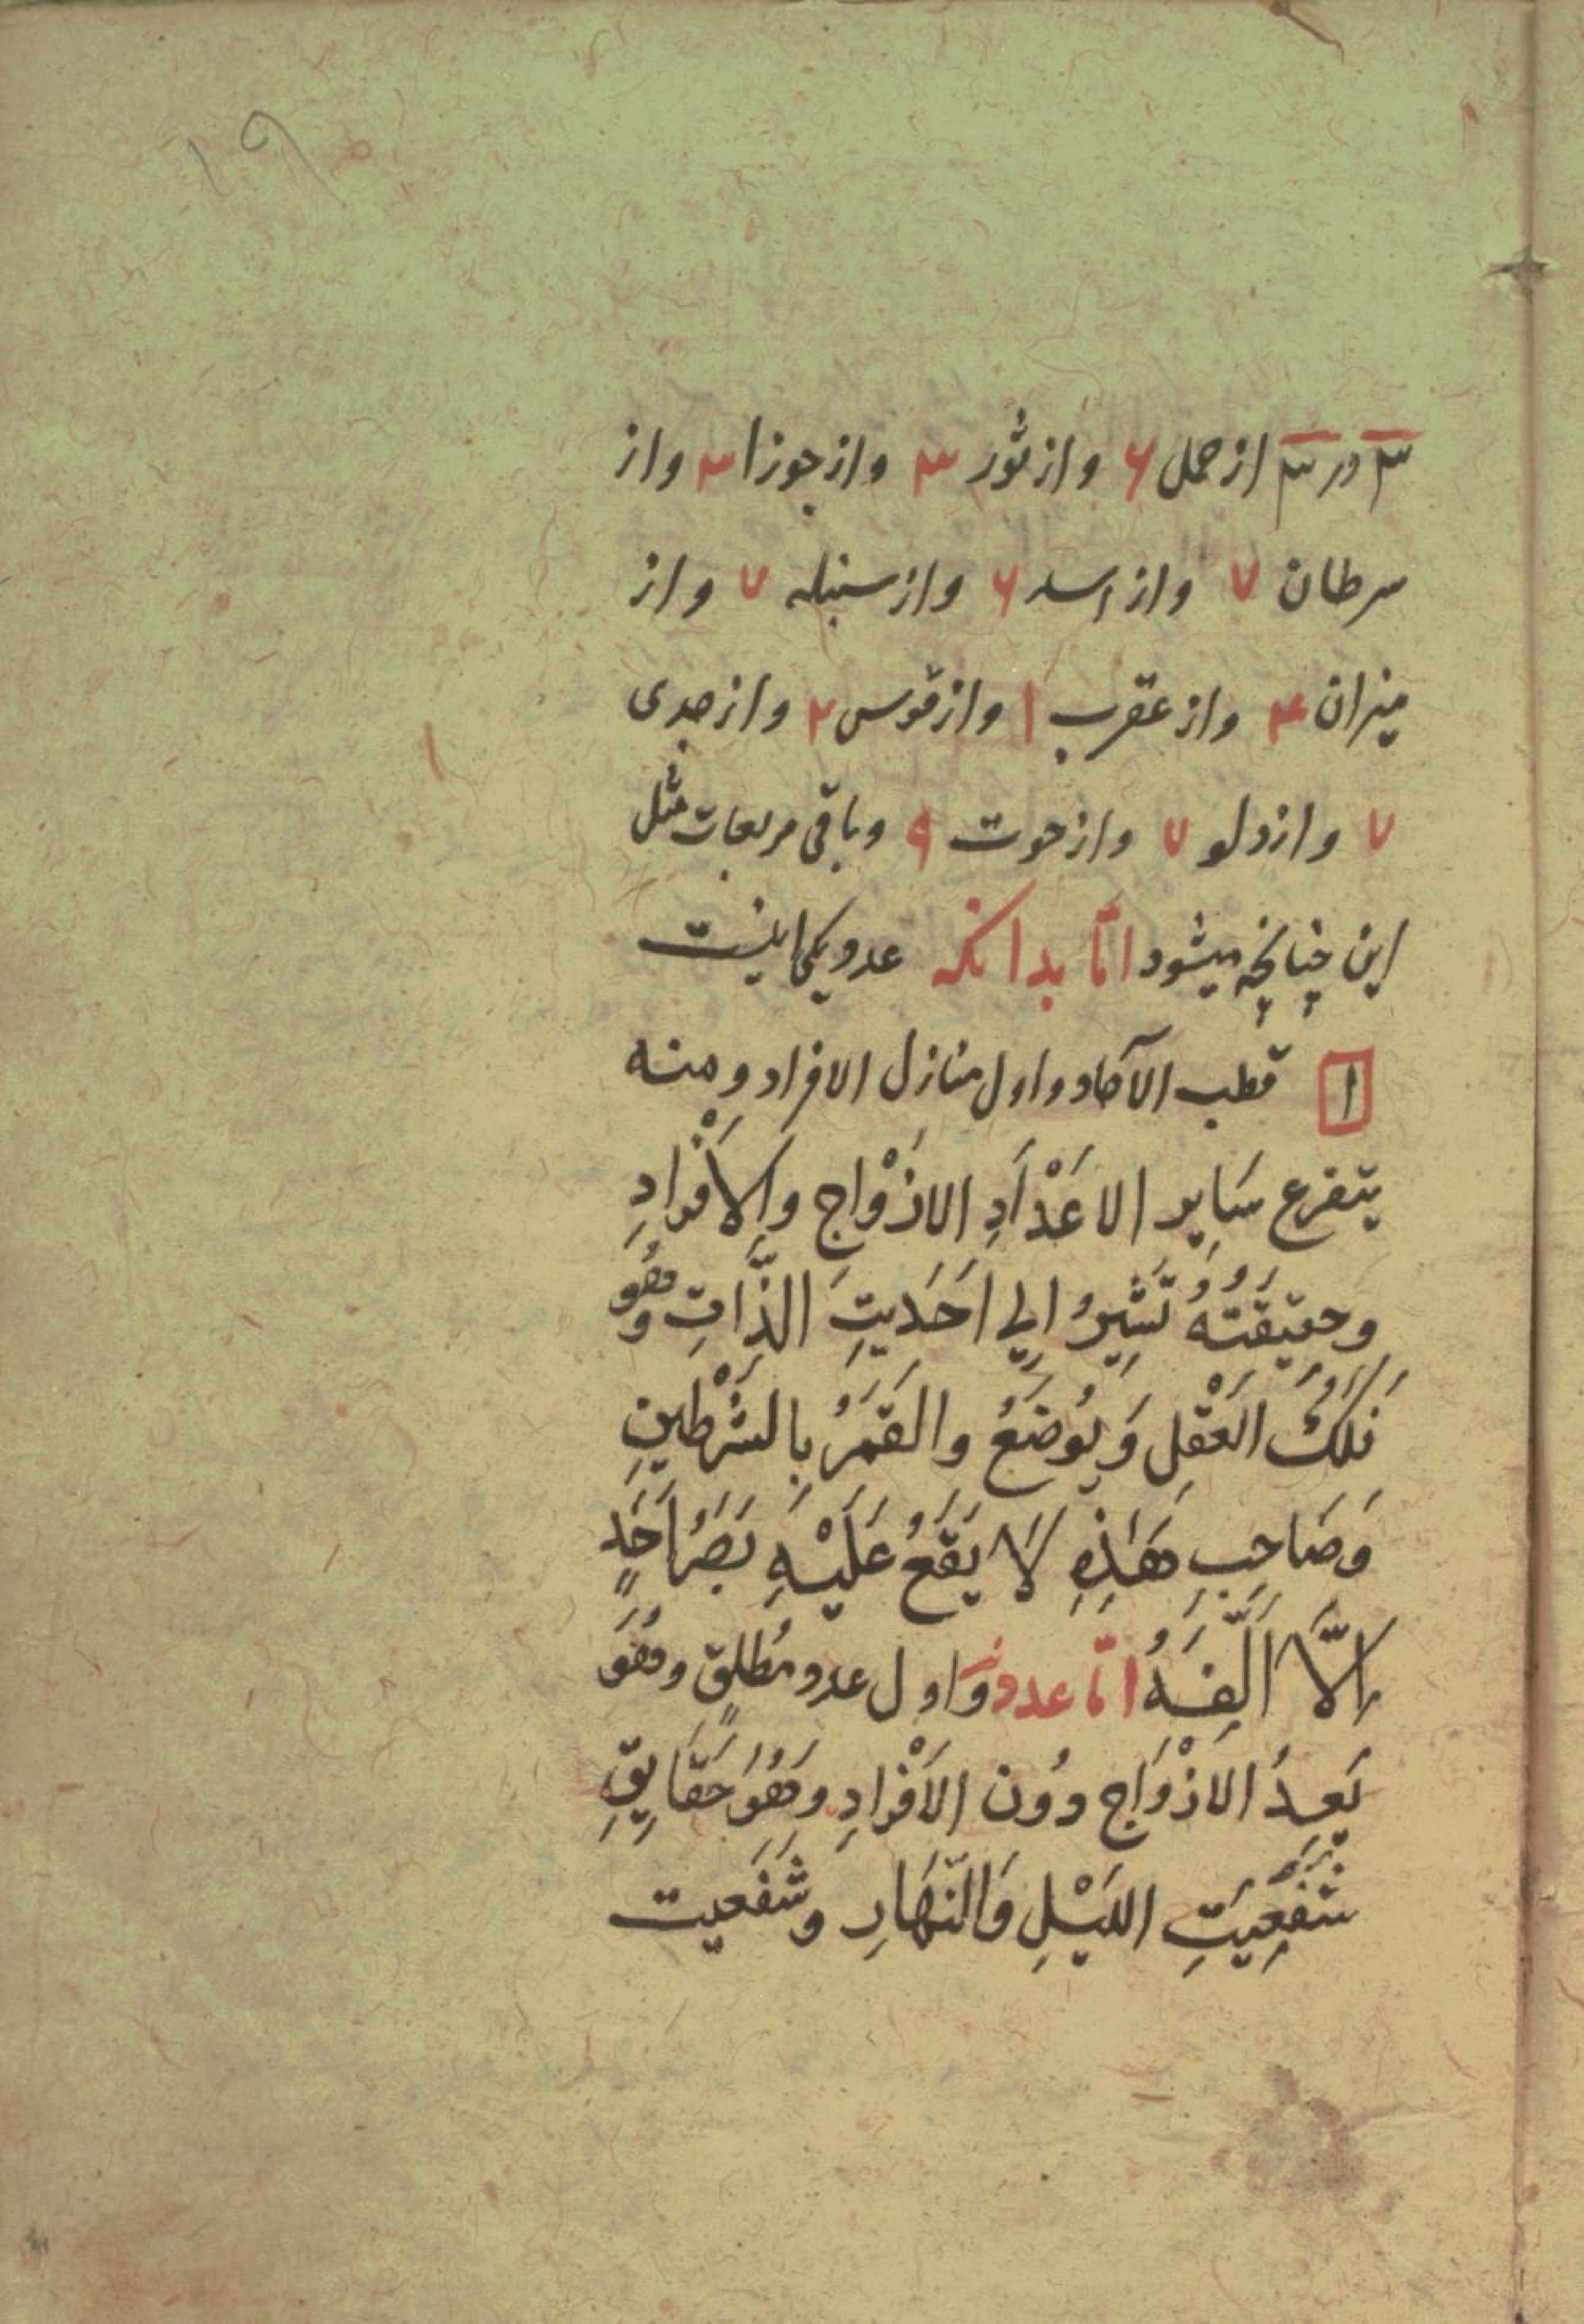 ۱۹
۳ در ۳ از حمل ۶ و از ثور ۳ و از جوزا ۳ و از
سرطان ۷ و از اسد ۶ و از سنبله ۷ و از
میزان ۴ و از عقرب ۱ و از قوس ۲ و از جدی
۷ و از دلو ۷ و از حوت ۹ و باقی مربعات مثل
این چنانچه میشود امّا بدانکه عدد یکی اینست
۱ قطب الآحاد و اول منازل الافراد ومِنْه
یتفرع سَایِر الاعْدَادِ الازْوَاج وَالاَفْرادِ
وحقیقَتُهُ تَشِیرُ اِلی اَحَدیتِ الذَّاتِ وَهُو
فَلَکُ العَقْلِ وَیُوضَعُ والقَمَرُ بِالشَرْطینِ
وَصَاحِبِ هَذِهِ لَا یَقَعُ عَلَیْهِ بَصَرُ اَحَدٍ
اِلَّا اَلَّفَهُ امّا عدد وَاول عدد مُطلقٍ وهُوَ
یَعِدُ الازْوَاج دُون الاَفْرادِ وَهُوَ حَقَایِقِ
شَفَعِیَتِ اللَیْلِ وَالنَّهَارِ وشَفَعیت